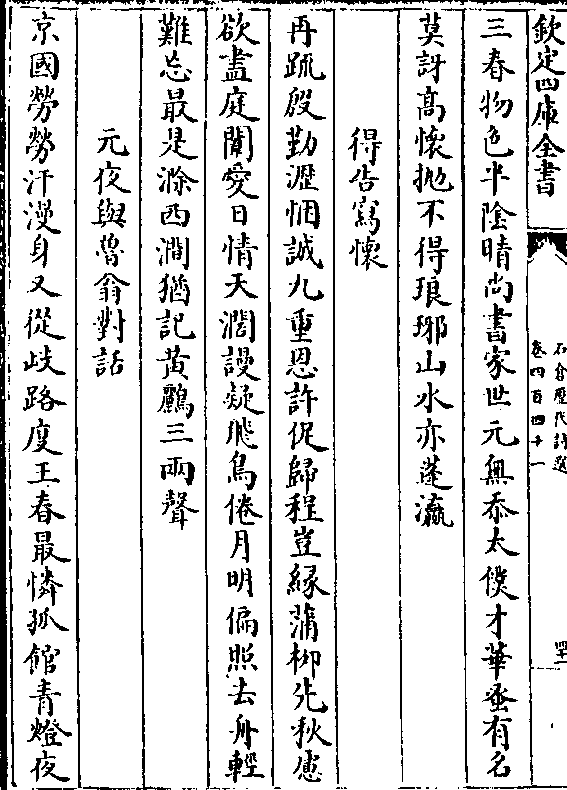 欽定四庫全書
石倉歷代詩選
卷四百四十一
三春物色半陰晴尚書家世元無忝太僕才華蚤有名
莫訝髙懷抛不得琅琊山水亦蓬瀛
得告寫懷
再疏殷勤瀝悃誠九重恩許促歸程豈縁蒲柳先秋慮
欲盡庭闈愛日情天濶謾疑飛鳥倦月明偏照去舟輕
難忘最是滁西澗猶記黄鸝三兩聲
元夜與魯翁對話
京國勞勞汗漫身又從歧路度王春最憐孤館青燈夜